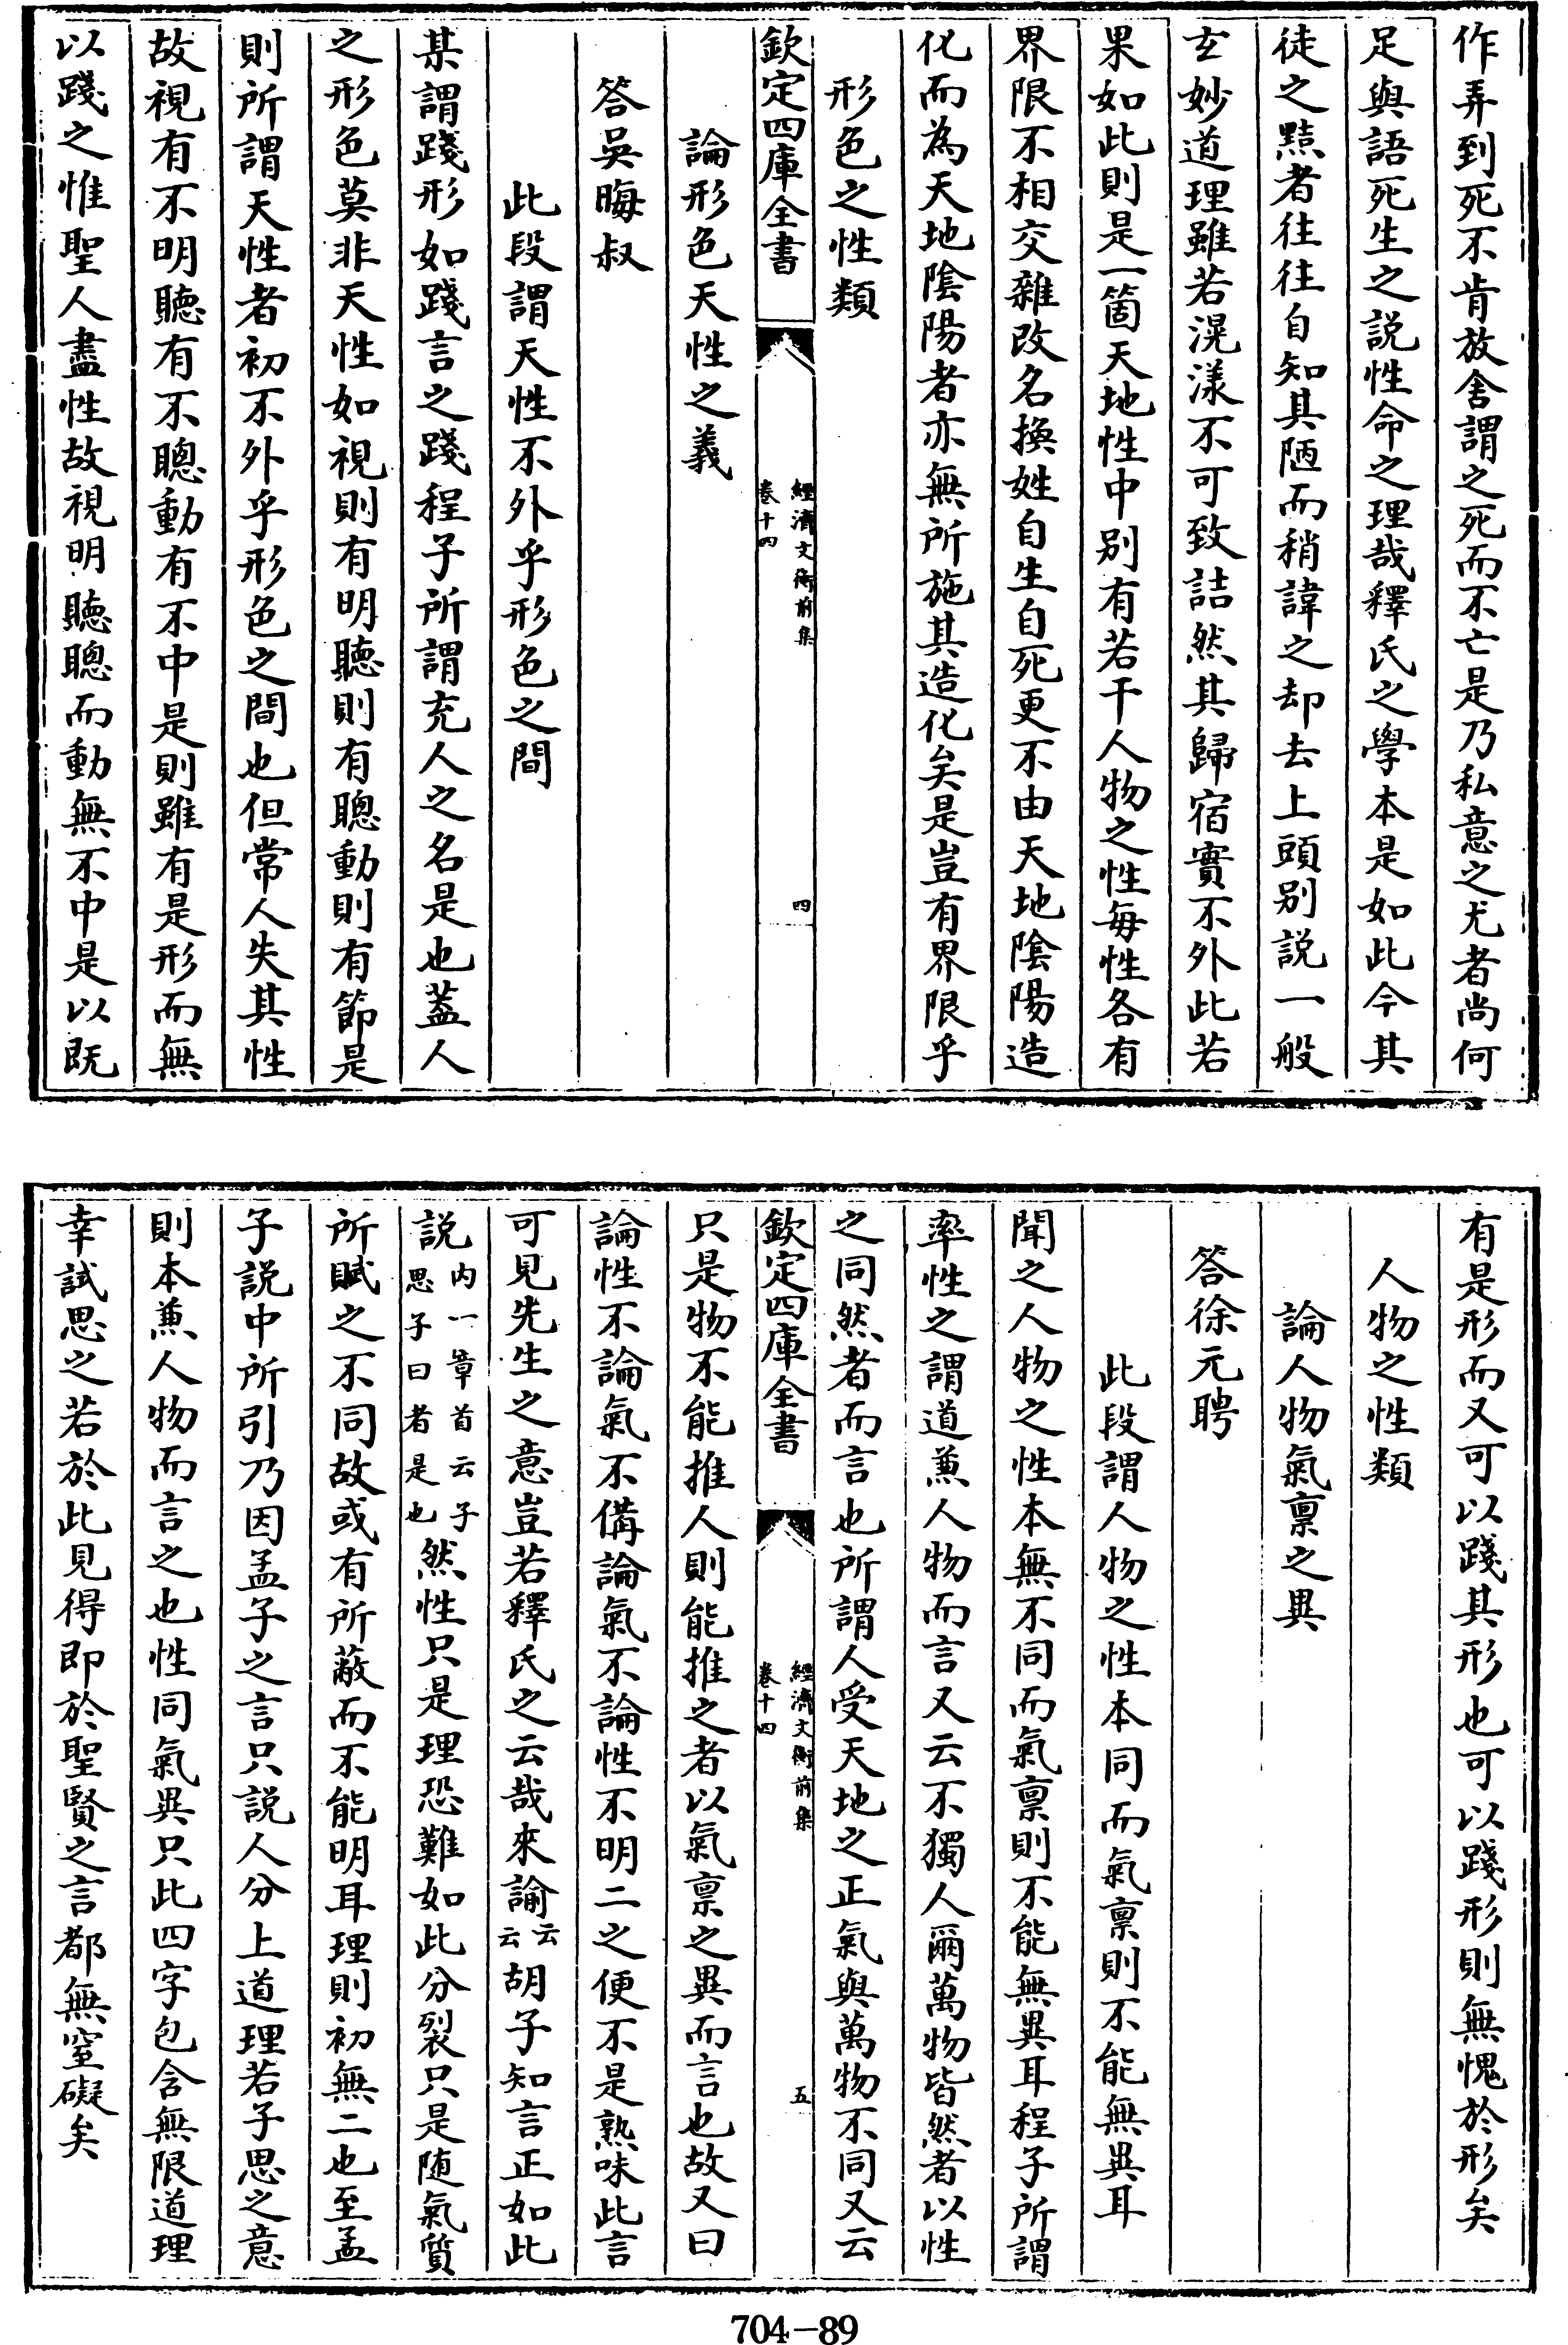 作弄到死不肯放舍謂之死而不亡是乃私意之尤者尚何
足與語死生之説性命之理哉釋氏之學本是如此今其
徒之黠者往往自知其陋而稍諱之却去上頭别説一般
玄妙道理雖若滉漾不可致詰然其歸宿實不外此若
果如此則是一箇天地性中别有若干人物之性每性各有
界限不相交雜改名換姓自生自死更不由天地陰陽造
化而為天地陰陽者亦無所施其造化矣是豈有界限乎
形色之性類
欽定四庫全書
經濟文衡前集
卷十四
四
論形色天性之義
答吳晦叔
此段謂天性不外乎形色之間
某謂踐形如踐言之踐程子所謂充人之名是也蓋人
之形色莫非天性如視則有明聽則有聰動則有節是
則所謂天性者初不外乎形色之間也但常人失其性
故視有不明聽有不聰動有不中是則雖有是形而無
以踐之惟聖人盡性故視明聽聰而動無不中是以既
有是形而又可以踐其形也可以踐形則無愧於形矣
人物之性類
論人物氣禀之異
答徐元聘
此段謂人物之性本同而氣禀則不能無異耳
聞之人物之性本無不同而氣禀則不能無異耳程子所謂
率性之謂道兼人物而言又云不獨人爾萬物皆然者以性
之同然者而言也所謂人受天地之正氣與萬物不同又云
欽定四庫全書
經濟文衡前集
卷十四
五
只是物不能推人則能推之者以氣禀之異而言也故又曰
論性不論氣不備論氣不論性不明二之便不是熟味此言
可見先生之意豈若釋氏之云哉來諭云云胡子知言正如此
説内一章首云子思子曰者是也然性只是理恐難如此分裂只是随氣質
所賦之不同故或有所蔽而不能明耳理則初無二也至孟
子説中所引乃因孟子之言只説人分上道理若子思之意
則本兼人物而言之也性同氣異只此四字包含無限道理
幸試思之若於此見得即於聖賢之言都無窒礙矣
704-89